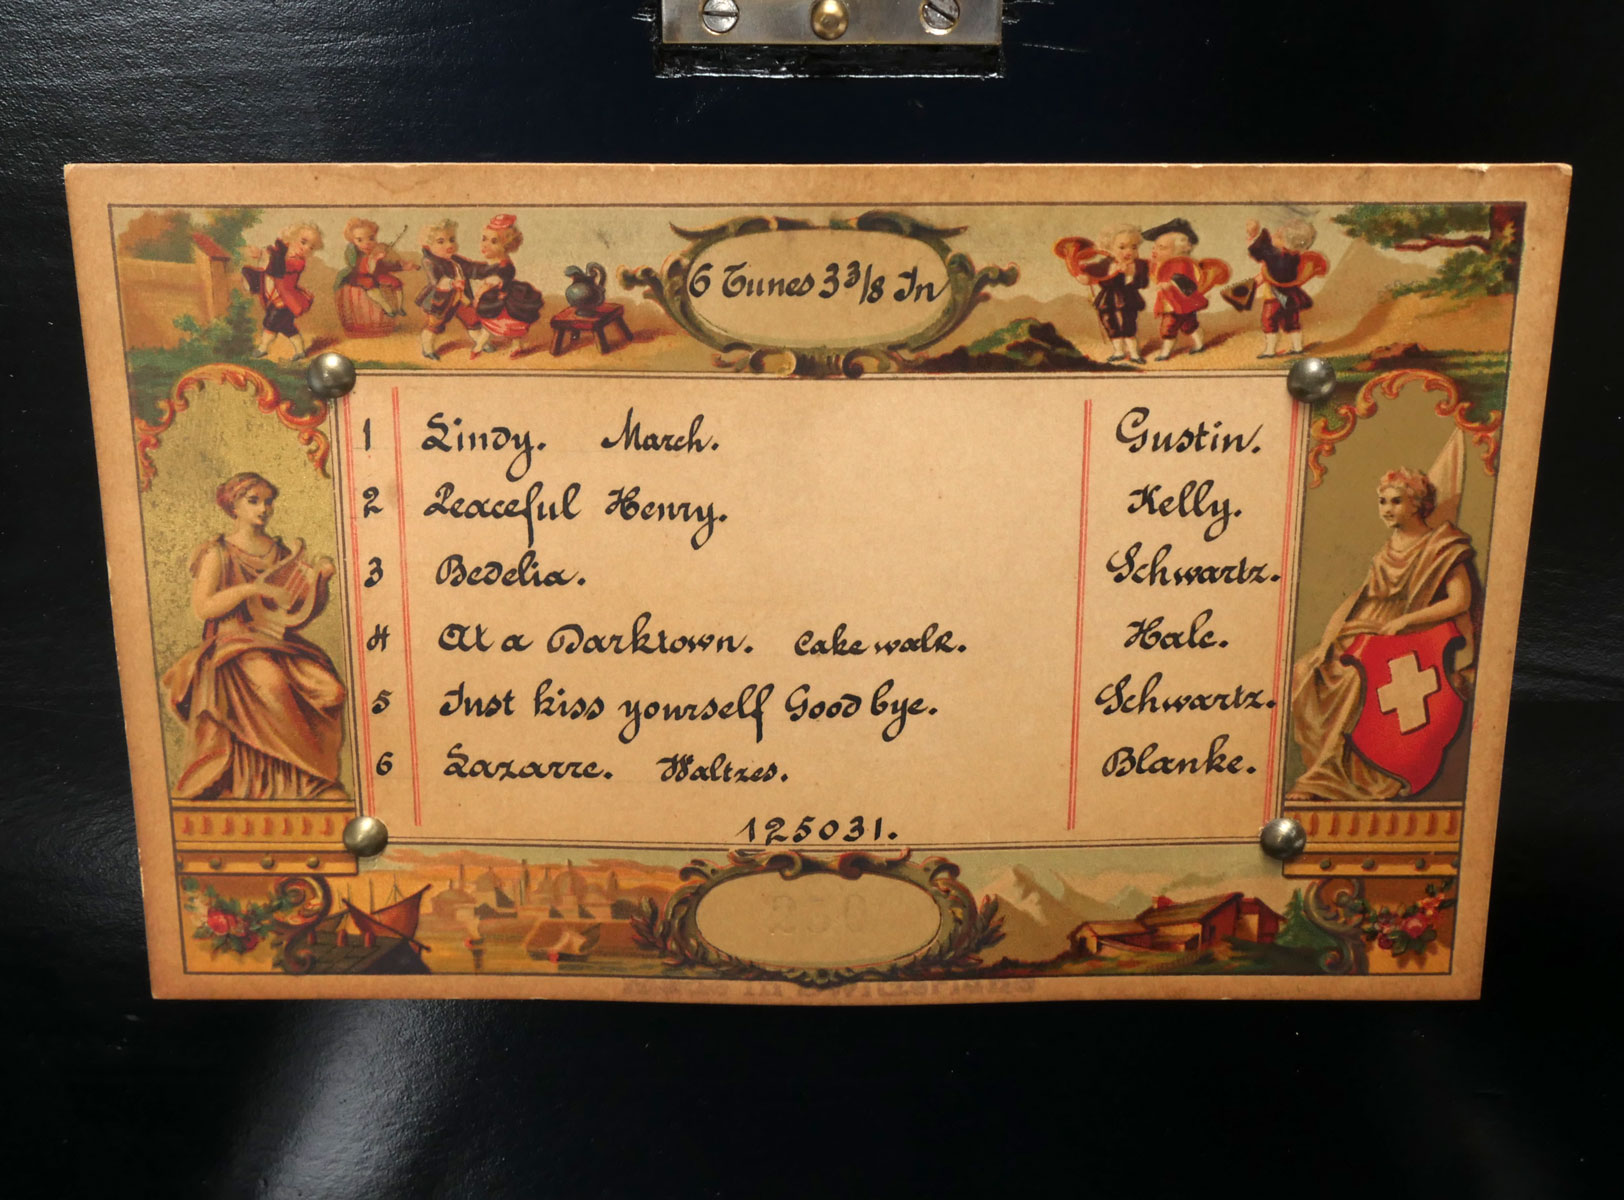 6 Tunes 3 3/8 In
1 Lindy. March. Gustin.
2 Peaceful Henry. Kelly.
3 Bedelia. Schwartz.
4 At a Darktown. Cake walk. Hale.
5 Just kiss yourself Good bye. Schwartz.
6 Lazarre. Waltzes. Blanke.
125031.